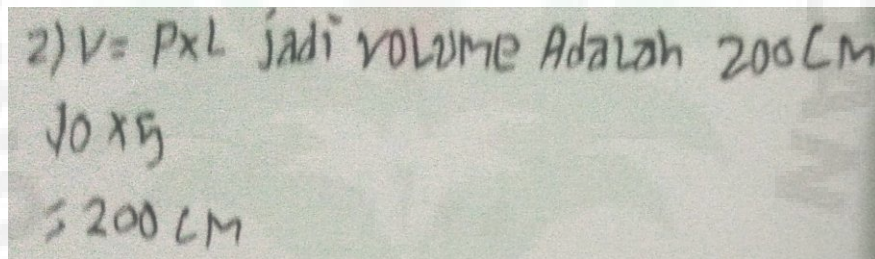 2) V = PxL jadi VOLUME AdaLah 200 CM
10 x 5
= 200 CM